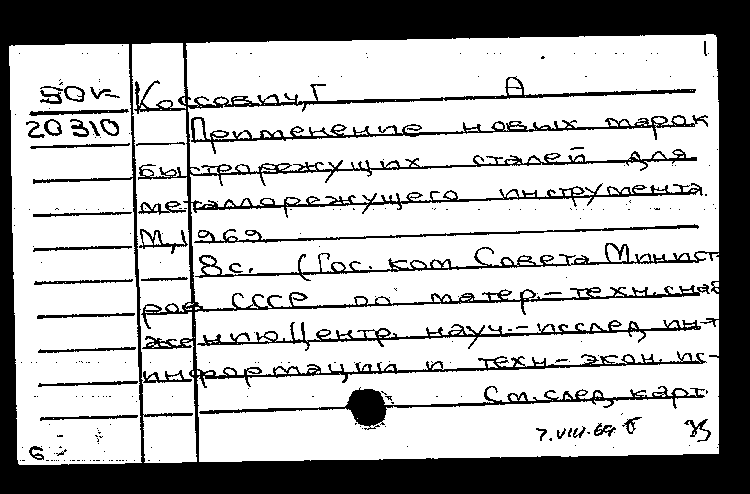 1
50к Коссович, Г А
20310 Применение новых марок
быстрорежущих сталей для
металлорежущего инструмента
М, 1969
8с. (Гос. ком. Совета Минист-
ров СССР по матер.-техн. снаб
жению. Центр. науч.-исслед. ин-т
информации и техн.-экон. ис-
См. след. карт
7.VIII-69
6